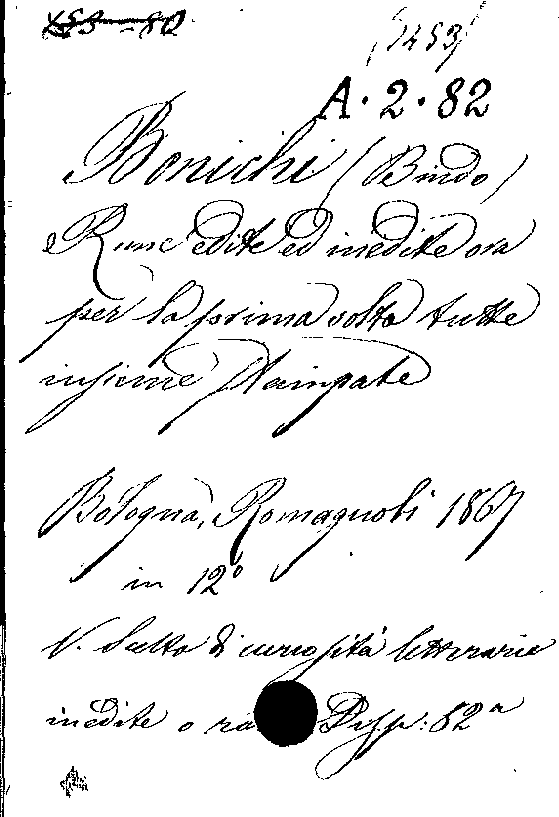 (1453)
A · 2 · 82
Bonichi (Bindo)
Rime edite ed inedite ora
per la prima volta tutte
insieme stampate
Bologna, Romagnoli 1867
in 12º
V. Scelta di curiosità letterarie
inedite o ra Disp: 82ª